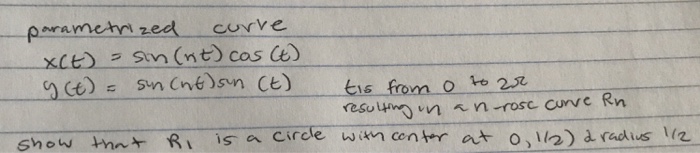 parametrized curve
x(t) = sin(nt) cos(t)
y(t) = sin(nt) sin (t) t is from 0 to 2π
resulting in a n-rose curve Rn
show that R1 is a circle with center at 0,1/2) & radius 1/2